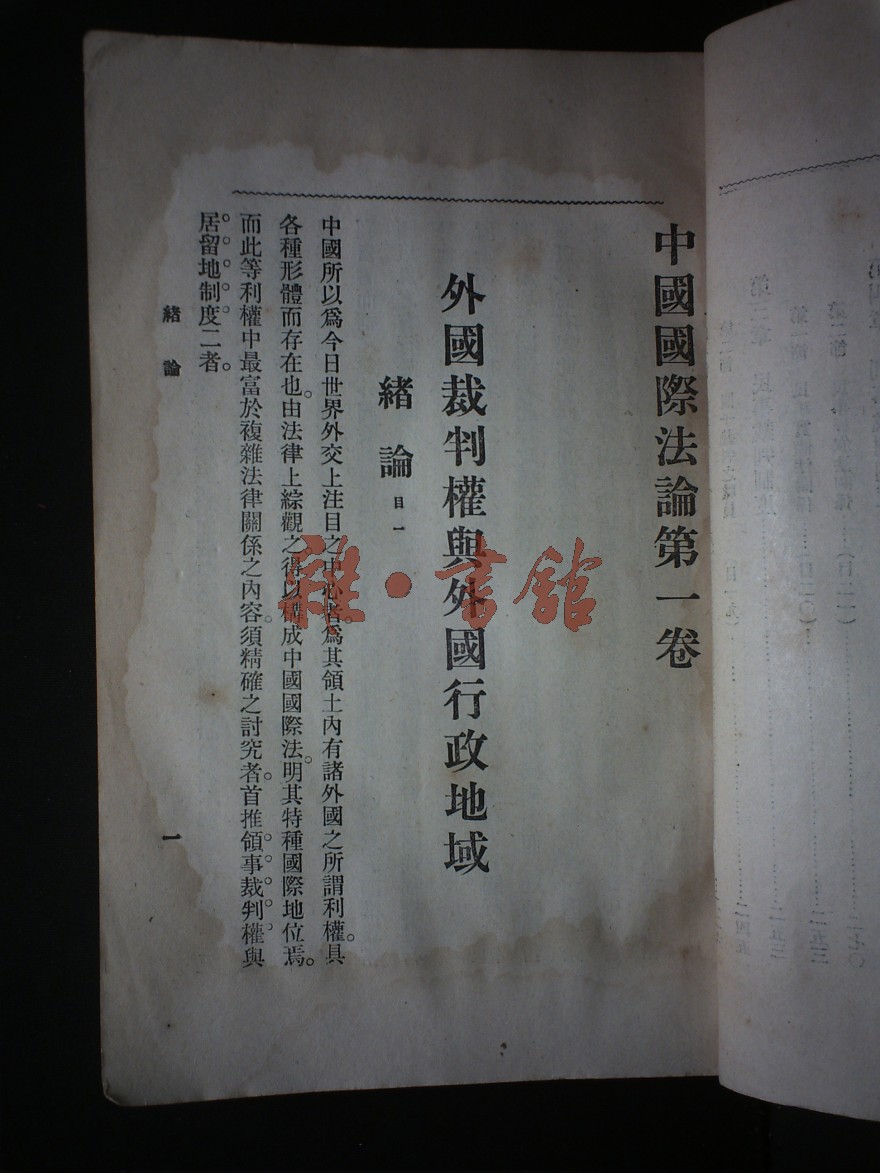 中國國際法論第一卷
外國裁判權與外國行政地域
緒論 目一
中國所以爲今日世界外交上注目之中心者。爲其領土內有諸外國之所謂利權。具
各種形體而存在也。由法律上綜觀之。得以構成中國國際法。明其特種國際地位焉。
而此等利權中最富於複雜法律關係之內容。須精確之討究者。首推領事裁判權與
居留地制度二者。
緒論
一
雜·書館